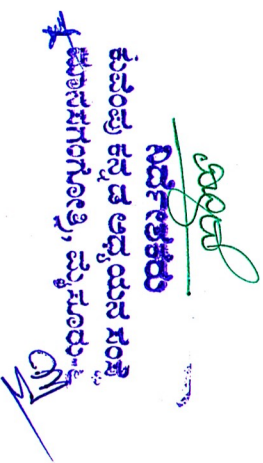 ನಿರ್ದೇಶಕರು
ಕುವೆಂಪು ಕನ್ನಡ ಅಧ್ಯಯನ ಸಂಸ್ಥೆ
ಮಾನಸಗಂಗೋತ್ರಿ, ಮೈಸೂರು-೬